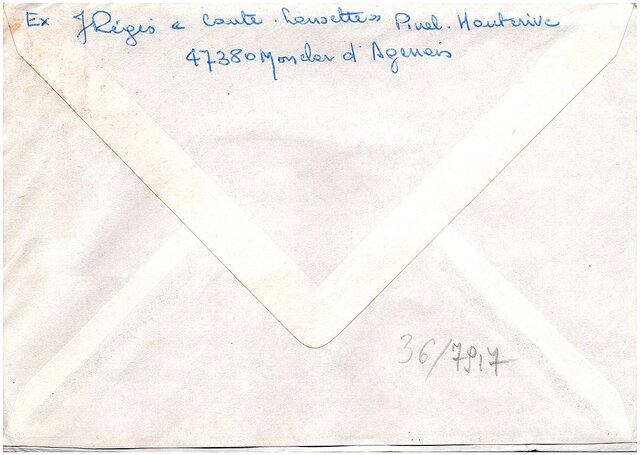 Ex J Régis « Caute. Lansette » Pinel. Hauterive
47380 Monclar d'Agenais
36/7917